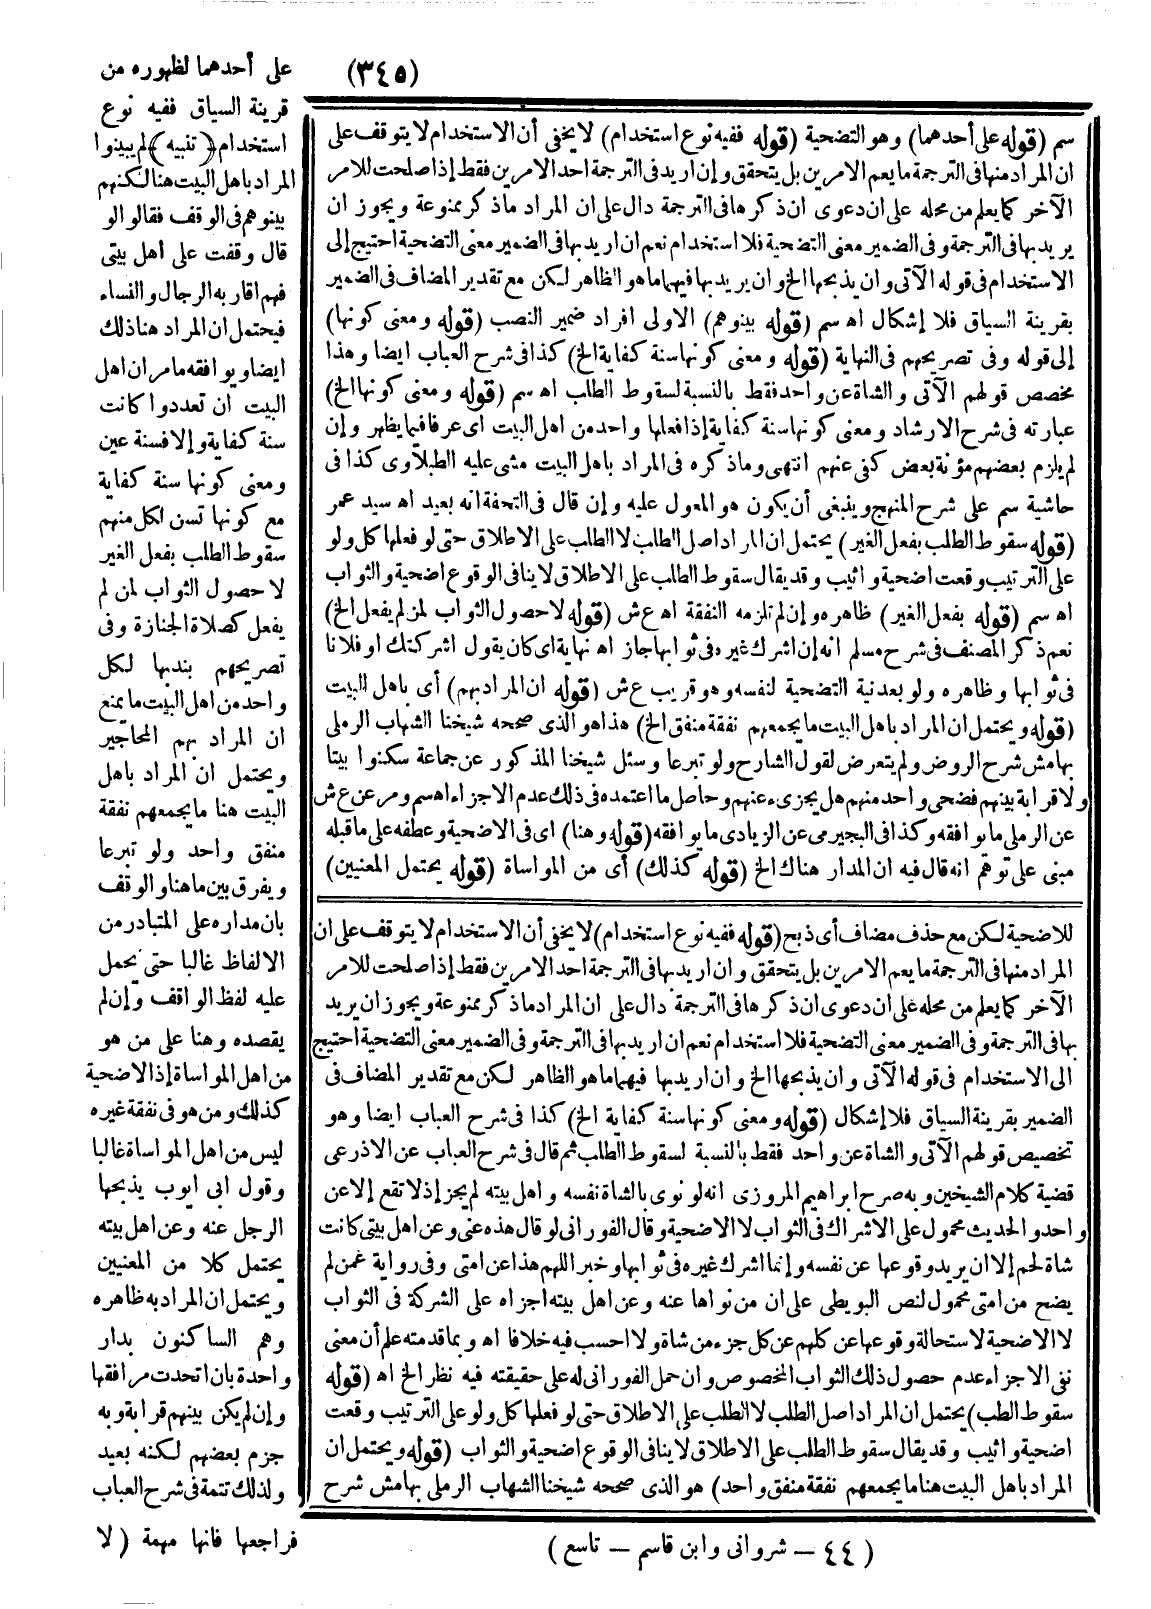 (٣٤٥)
على أحدهما لظهوره من
قرينة السياق ففيه نوع
استخدام ﴿ تنبيه ﴾ لم يبينوا
المراد باهل البيت هنا لكنهم
بينوهم فى الوقف فقالوا لو
قال وقفت على اهل بيتى
فهم اقاربه الرجال والنساء
فيحتمل ان المراد هنا ذلك
ايضا ويوافقه ما مر ان اهل
البيت ان تعددوا كانت
سنة كفاية وإلا فسنة عين
ومعنى كونها سنة كفاية
مع كونها تسن لكل منهم
سقوط الطلب بفعل الغير
لا حصول الثواب لمن لم
يفعل كصلاة الجنازة وفى
تصريحهم بندبها لكل
واحد من اهل البيت ما يمنع
ان المراد بهم المحاجير
ويحتمل ان المراد باهل
البيت هنا ما يجمعهم نفقة
منفق واحد ولو تبرعا
ويفرق بين ما هنا والوقف
بان مداره على المتبادر من
الالفاظ غالبا حتى يحمل
عليه لفظ الواقف وإن لم
يقصده وهنا على من هو
من اهل المواساة إذ الاضحية
كذلك ومن هو فى نفقة غيره
ليس من اهل المواساة غالبا
وقول ابى ايوب يذبحها
الرجل عنه وعن اهل بيته
يحتمل كلا من المعنيين
ويحتمل ان المراد به ظاهره
وهم الساكنون بدار
واحدة بان اتحدت مرافقها
وإن لم يكن بينهم قرابة وبه
جزم بعضهم لكنه بعيد
ولذلك تتمة فى شرح العباب
فراجعها فانها مهمة ( لا
سم (قوله على أحدهما) وهو التضحية (قوله ففيه نوع استخدام) لا يخفى أن الاستخدام لا يتوقف على
ان المراد منها فى الترجمة ما يعم الامرين بل يتحقق وإن اريد فى الترجمة احد الامرين فقط إذا صلحت للامر
الآخر كما يعلم من محله على ان دعوى ان ذكرها فى الترجمة دال على ان المراد ما ذكر ممنوعة ويجوز ان
يريد بها فى الترجمة وفى الضمير معنى التضحية فلا استخدام نعم ان اريد بها فى الضمير معنى التضحية احتيج إلى
الاستخدام فى قوله الآتى وان يذبحها الخ وان يريد بها فيهما ما هو الظاهر لكن مع تقدير المضاف فى الضمير
بقرينة السياق فلا إشكال اه سم (قوله بينوهم) الاولى افراد ضمير النصب (قوله ومعنى كونها)
إلى قوله وفى تصريحهم فى النهاية (قوله ومعنى كونها سنة كفاية الخ) كذا فى شرح العباب ايضا وهذا
مخصص قولهم الآتى والشاة عن واحد فقط بالنسبة لسقوط الطلب اه سم (قوله ومعنى كونها الخ)
عبارته فى شرح الارشاد ومعنى كونها سنة كفاية إذا فعلها واحد من اهل البيت اى عرفا فيما يظهر وإن
لم يلزم بعضهم مؤنة بعض كفى عنهم انتهى وما ذكره فى المراد باهل البيت مشى عليه الطبلاوى كذا فى
حاشية سم على شرح المنهج وينبغى أن يكون هو المعول عليه وإن قال فى التحفة انه بعيد اه سيد عمر
(قوله سقوط الطلب بفعل الغير) يحتمل ان المراد اصل الطلب لا الطلب على الاطلاق حتى لو فعلها كل ولو
على الترتيب وقعت اضحية واثيب وقد يقال سقوط الطلب على الاطلاق لا ينافى الوقوع اضحية والثواب
اه سم (قوله بفعل الغير) ظاهره وإن لم تلزمه النفقة اه ع ش (قوله لا حصول الثواب لمن لم يفعل الخ)
نعم ذكر المصنف فى شرح مسلم انه إن اشرك غيره فى ثوابها جاز اه نهاية اى كان يقول اشركتك او فلانا
فى ثوابها وظاهره ولو بعد نية التضحية لنفسه وهو قريب ع ش (قوله ان المراد بهم) أى باهل البيت
(قوله ويحتمل ان المراد باهل البيت ما يجمعهم نفقة منفق الخ) هذا هو الذى صححه شيخنا الشهاب الرملى
بهامش شرح الروض ولم يتعرض لقول الشارح ولو تبرعا وسئل شيخنا المذكور عن جماعة سكنوا بيتا
ولا قرابة بينهم فضحى واحد منهم هل يجزىء عنهم وحاصل ما اعتمده فى ذلك عدم الاجزاء اه سم ومر عن ع ش
عن الرملى ما يوافقه وكذا فى البجيرمى عن الزيادى ما يوافقه (قوله وهنا) اى فى الاضحية وعطفه على ما قبله
مبنى على توهم انه قال فيه ان المدار هناك الخ (قوله كذلك) أى من المواساة (قوله يحتمل المعنيين)
للاضحية لكن مع حذف مضاف أى ذبح (قوله ففيه نوع استخدام) لا يخفى أن الاستخدام لا يتوقف على ان
المراد منها فى الترجمة ما يعم الامرين بل يتحقق وان اريد بها فى الترجمة احد الامرين فقط إذا صلحت للامر
الآخر كما يعلم من محله على ان دعوى ان ذكرها فى الترجمة دال على ان المراد ما ذكر ممنوعة ويجوز ان يريد
بها فى الترجمة وفى الضمير معنى التضحية فلا استخدام نعم ان اريد بها فى الترجمة وفى الضمير معنى التضحية احتيج
الى الاستخدام فى قوله الآتى وان يذبحها الخ وان اريد بها فيهما ما هو الظاهر لكن مع تقدير المضاف فى
الضمير بقرينة السياق فلا إشكال (قوله ومعنى كونها سنة كفاية الخ) كذا فى شرح العباب ايضا وهو
تخصيص قولهم الآتى والشاة عن واحد فقط بالنسبة لسقوط الطلب ثم قال فى شرح العباب عن الاذرعى
قضية كلام الشيخين وبه صرح ابراهيم المروزى انه لو نوى بالشاة نفسه واهل بيته لم يجز إذ لا تقع إلا عن
واحد والحديث محمول على الاشراك فى الثواب لا الاضحية وقال الفورانى لو قال هذه عنى وعن اهل بيتى كانت
شاة لحم إلا ان يريد وقوعها عن نفسه وإنما اشرك غيره فى ثوابها وخبر اللهم هذا عن امتى وفى رواية عمن لم
يضح من امتى محمول لنص البويطى على ان من نواها عنه وعن اهل بيته اجزاه على الشركة فى الثواب
لا الاضحية لاستحالة وقوعها عن كلهم عن كل جزء من شاة ولا احسب فيه خلافا اه وبما قدمته علم أن معنى
نفى الاجزاء عدم حصول ذلك الثواب المخصوص وان حمل الفورانى له على حقيقته فيه نظر الخ اه (قوله
سقوط الطب) يحتمل ان المراد اصل الطلب لا الطلب على الاطلاق حتى لو فعلها كل ولو على الترتيب وقعت
اضحية واثيب وقد يقال سقوط الطلب على الاطلاق لا ينافى الوقوع اضحية والثواب (قوله ويحتمل ان
المراد باهل البيت هنا ما يجمعهم نفقة منفق واحد) هو الذى صححه شيخنا الشهاب الرملى بهامش شرح
( ٤٤ — شروانى وابن قاسم — تاسع )